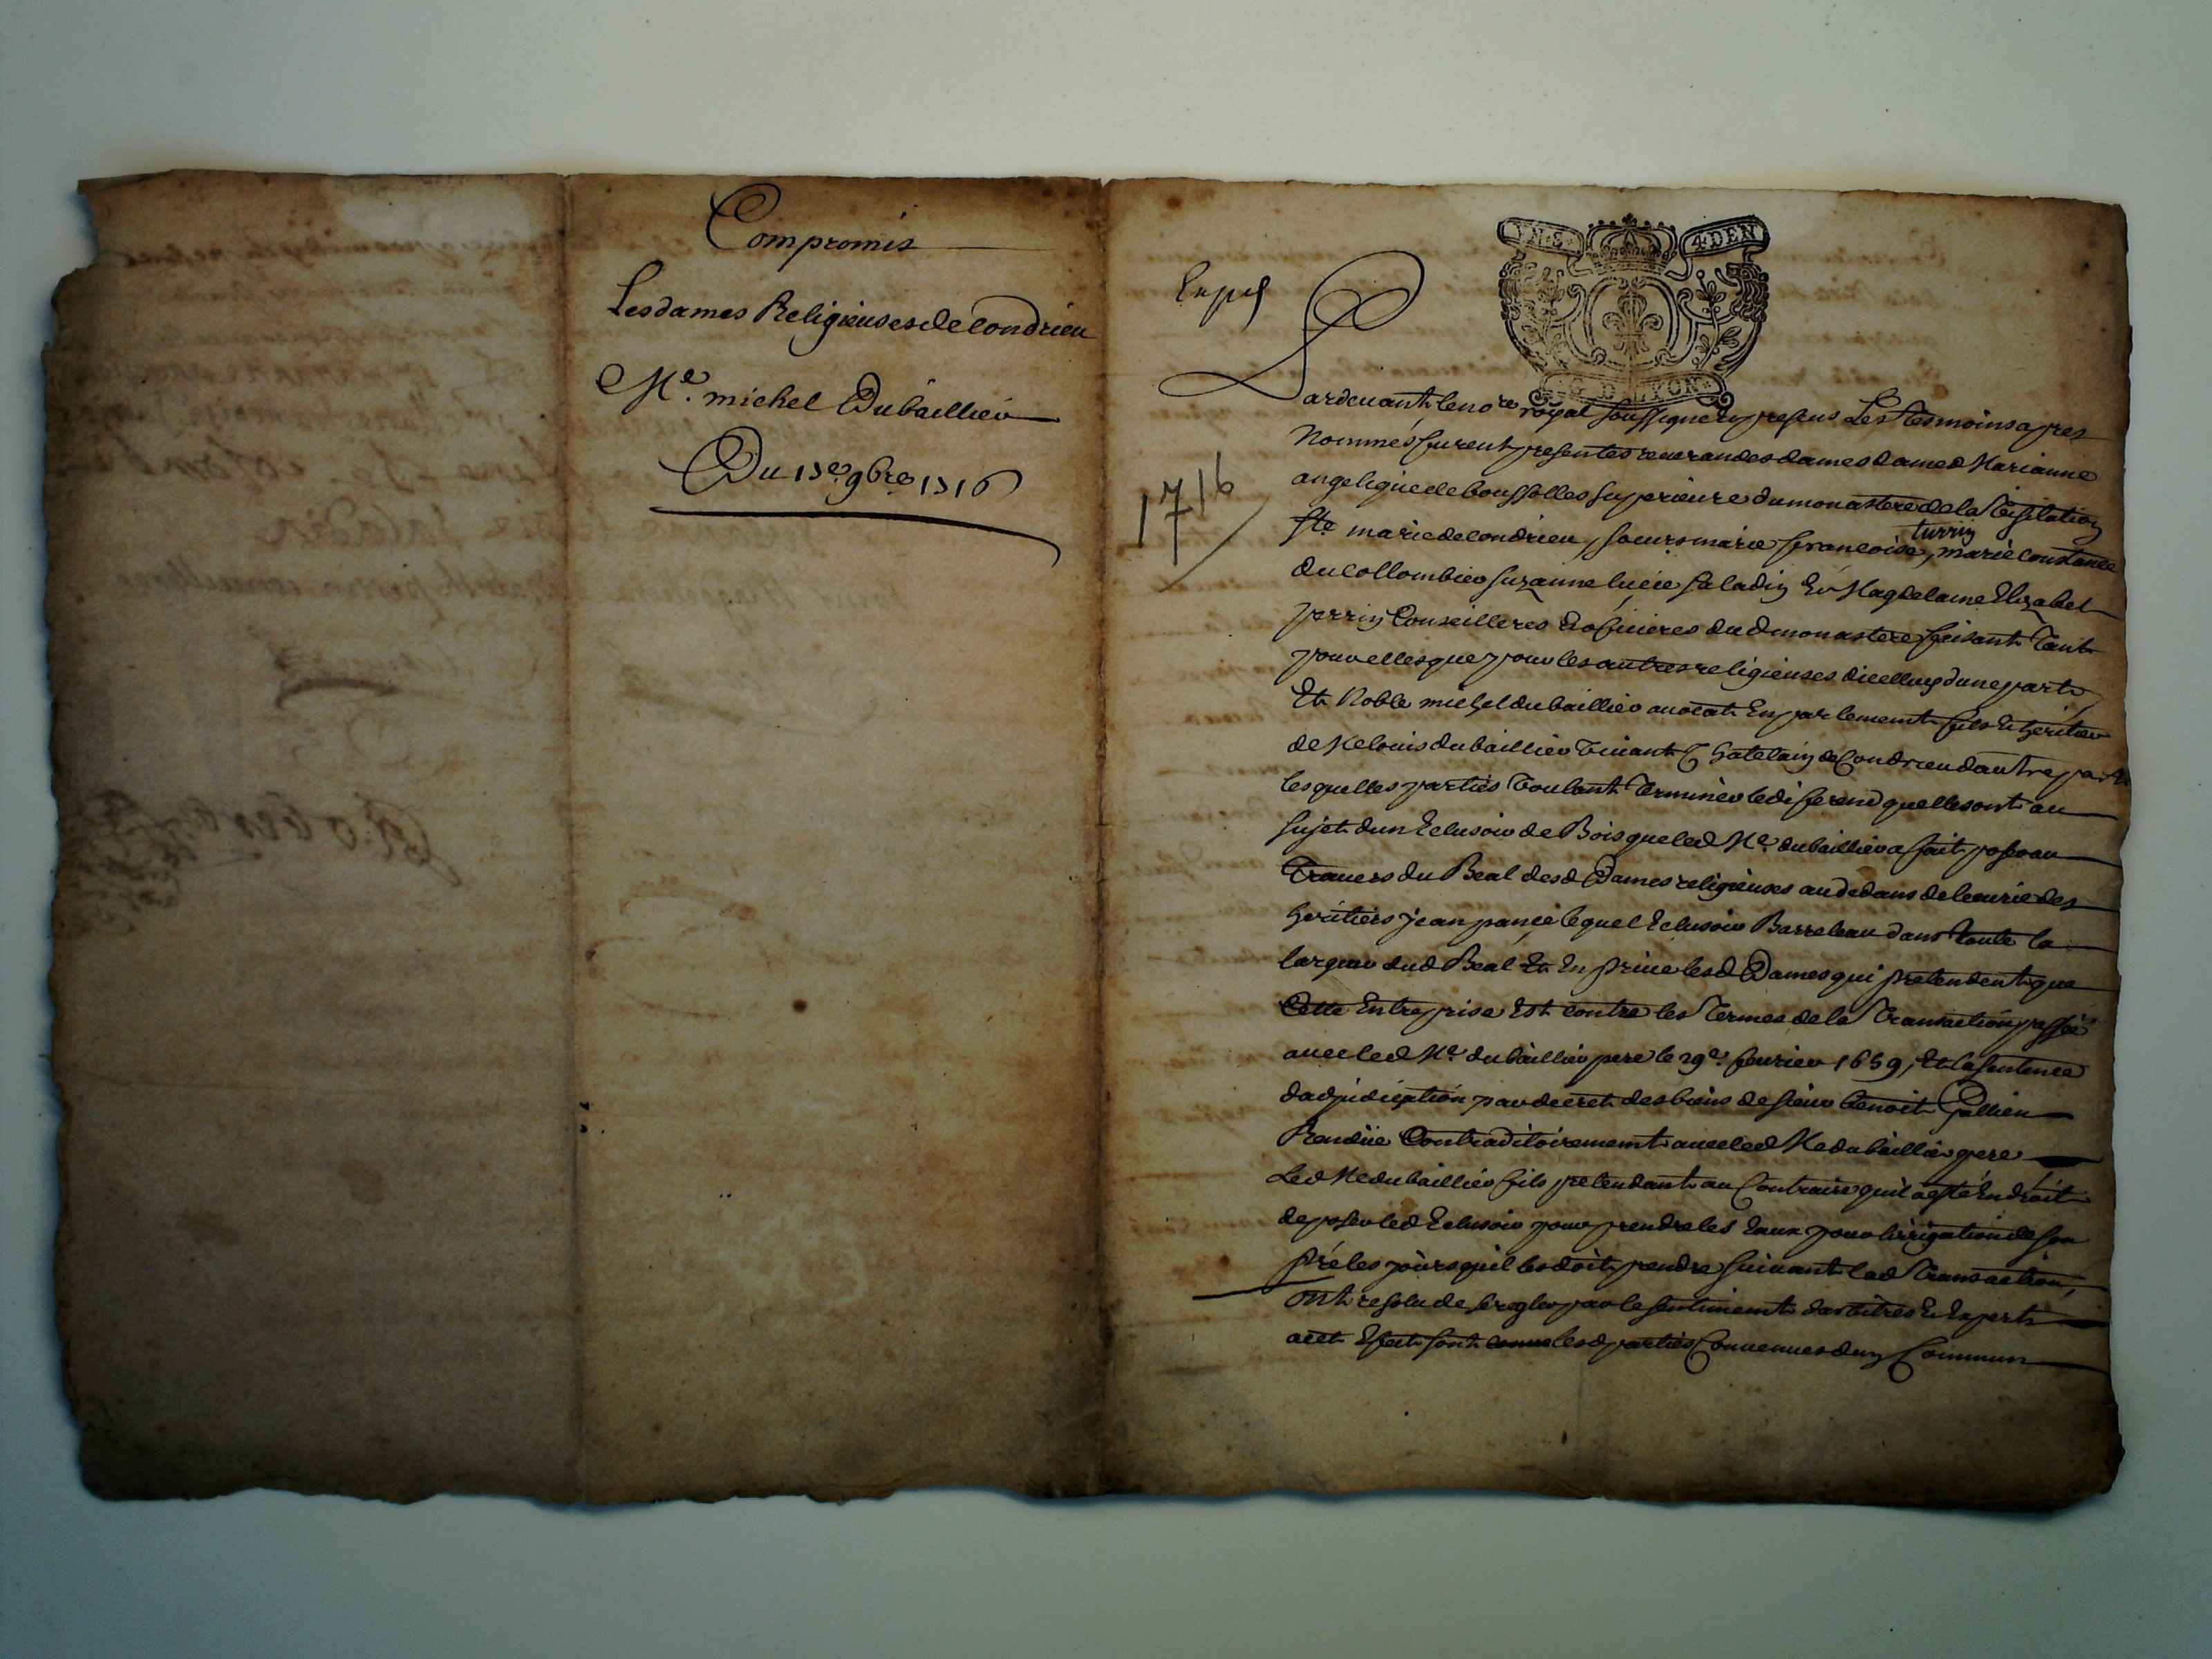 Compromis
Les dames Religieuses de Condrieu
Me. michel Dubaillier
Du 17e. 9bre 1716
1716
IN-S. 4DEN
G. D LYON
Pardeuant le no.re royal soussigné et presens Les tesmoins apres
Nommés furent presentes reuerandes dames dames Marianne
angelique de boussolles superieure du monastere de la Visitation
Ste marie de condrieu, soeurs marie francoise turrin, marie Constance
du Collombier suzanne lucie saladin Et Magdelaine Elizabet
perrin Conseilleres Et oficieres dud monastere faisant Tant
pour elles que pour les autres religieuses dicelluy dune part
Et Noble michel dubaillier auocat En parlement fils Et heritier
de Me louis dubaillier viuant Chatelain de Condrieu dautre part
lesquelles parties Voulant Terminer le diferend quelles ont au
sujet dun Eclusoir de Bois que led Me. dubaillier a fait poser au
Trauers du Beal desd Dames religieuses au dedans de lecurie des
heritiers jean pancé lequel Eclusoir Barre leau dans toute la
largeur dud Beal Et En priue lesd Dames qui pretendent que
Cette Entreprise Est contre les Termes de la Transaction passée
auec led Me. dubaillier pere le 29e. feurier 1659, Et la sentence
dadjudication par decret des biens de sieur benoit Gallien
Rendüe Contraditoirement auec led Me dubaillier pere
Led Me dubaillier fils pretendant au Contraire quil a esté En droit
de poser led Eclusoir pour prendre les Eaux pour lirrigation de son
pré les jours quil les doit prendre suiuant lad Transaction,
ont resolu de se regler par le sentiment darbitres Et Experts
a cet Efect sont lesd parties Conuenues dun Commun